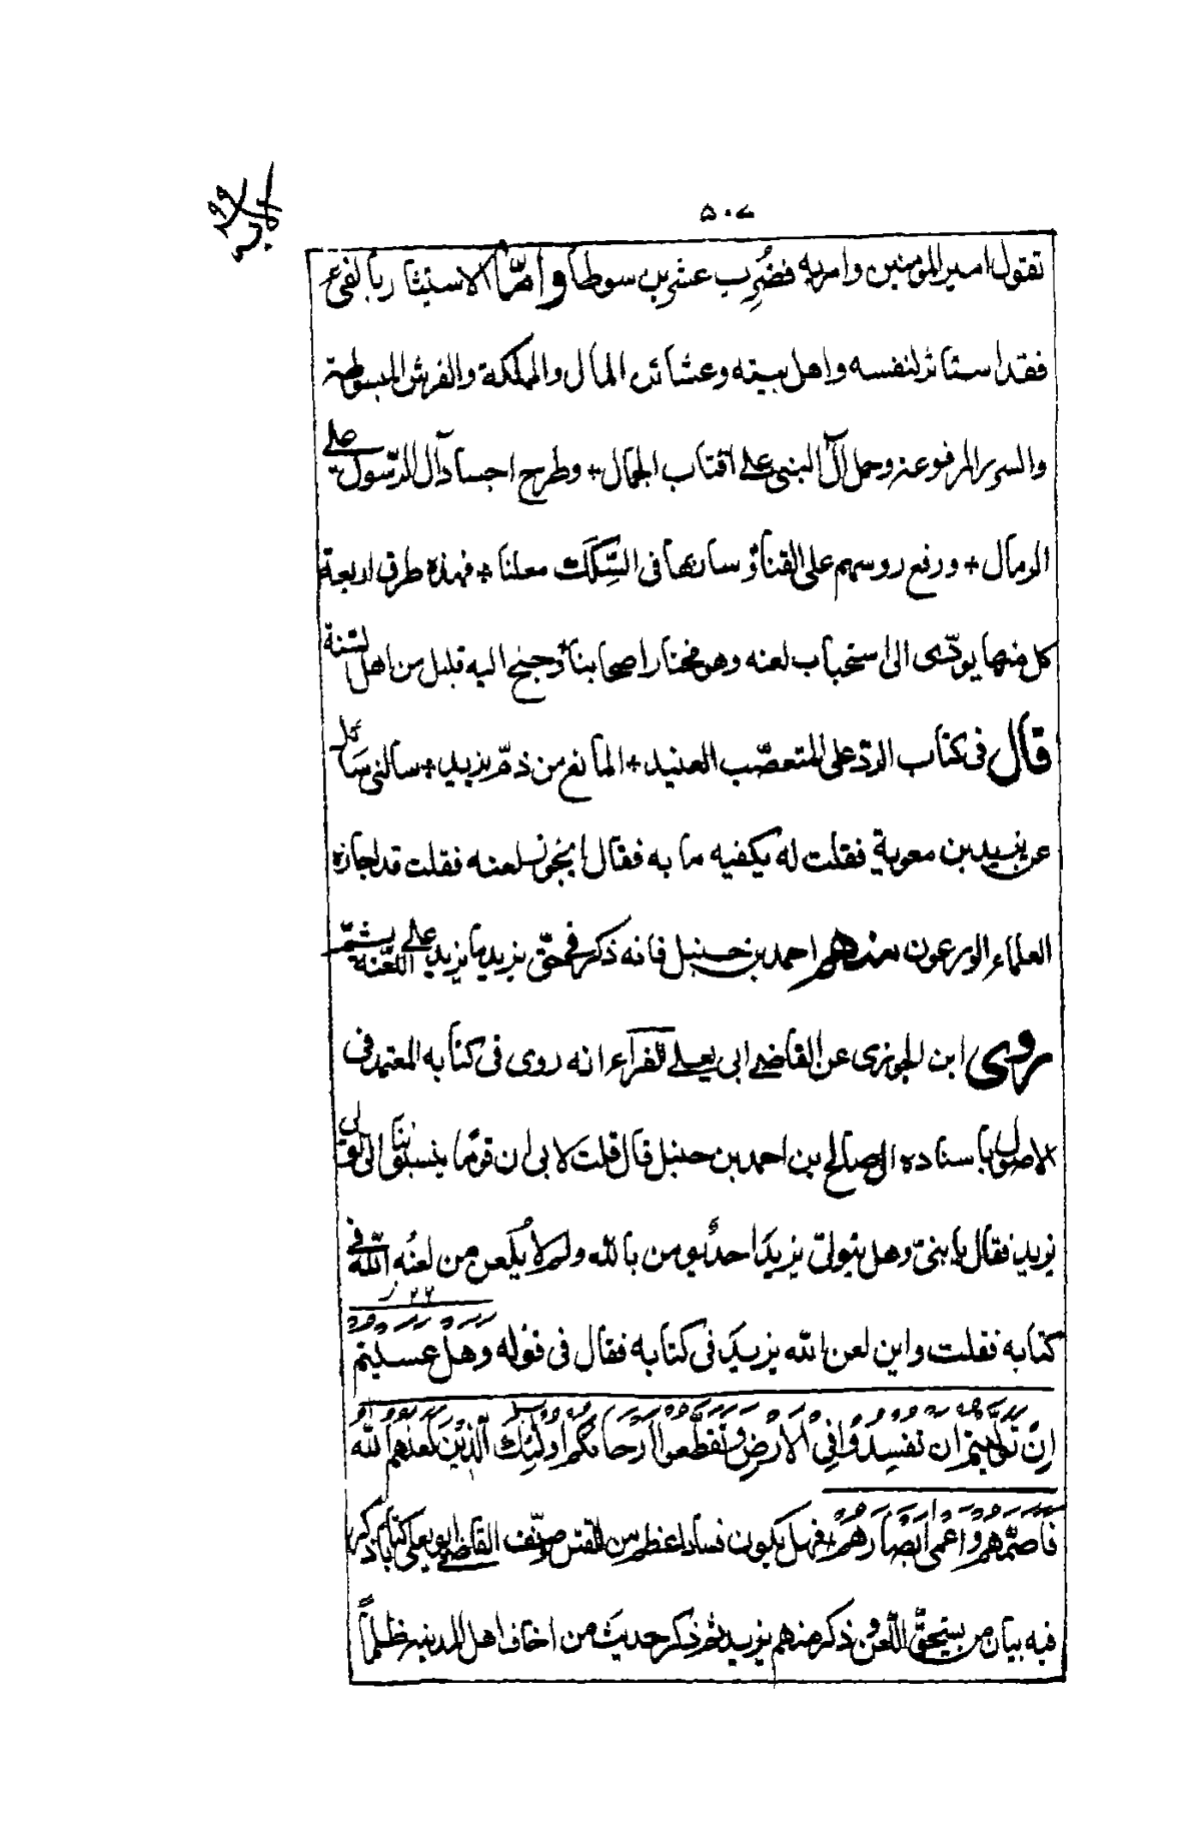 ۵۰۷
تقول امير المؤمنين وامر به فضُرِب عشرين سوطا وأمّا الاستيثار بالفئ
فقد استاثر لنفسه واهل بيته وعشائره المال والمملكة والفرش المبسوطة
والسرر المرفوعة وحمل آل النبى على اقتاب الجمال + وطرح اجساد آل الرّسول على
الرمال + ورفع روسهم على القناؤ سارها فى السِّكك معلنا + فهذه طرق اربعة
كل منها يودّى الى استحباب لعنه وهو مختار اصحابنا وجنح اليه قليل من اهل السّنة
قال فى كتاب الردّ على المتعصّب العنيد + المانع من ذمّ يزيد + سالنى سائل
عن يزيد بن معوية فقلت له يكفيه ما به فقال ايجوز لعنه فقلت قد اجازه
العلماء الورعون منهم احمد بن حنبل فانه ذكر فى حقّ يزيد ما يزيد على اللّعنة
روى ابن الجوزى عن القاضى ابى يعلى الفرّاء انه روى فى كتابه المعتمد فى
الاصول باسناده الى صالح بن احمد بن حنبل قال قلت لابى ان قومًا ينسبوننا الى تولى
يزيد فقال يا بنىّ وهل يتولىّ يزيدَ احدٌ يومن بالله ولم لا يُلعن من لعنُه اللّه فى
كتابه فقلت واين لعن الله يزيد فى كتابه فقال فى قوله وهل عسيتم
اِنْ تَوَلَّيتم ان تفسِدُوْا فِى الْاَرْضِ وَتُقَطِّعُوا اَرْحَامَكُم اُولٰئِكَ الَّذِيْنَ لَعَنَهُم اللّٰه
فَاَصَمَّهُم وَاَعْمٰى اَبْصَارَهُمْ + فهل يكون فسادا اعظم من القتل وصنّف القاضى ابو يعلى كتابا ذكر
فيه بيان من يستحقّ اللّعن وذكر منهم يزيد ثم ذكر حديث من اخاف اهل المدينة ظلماً